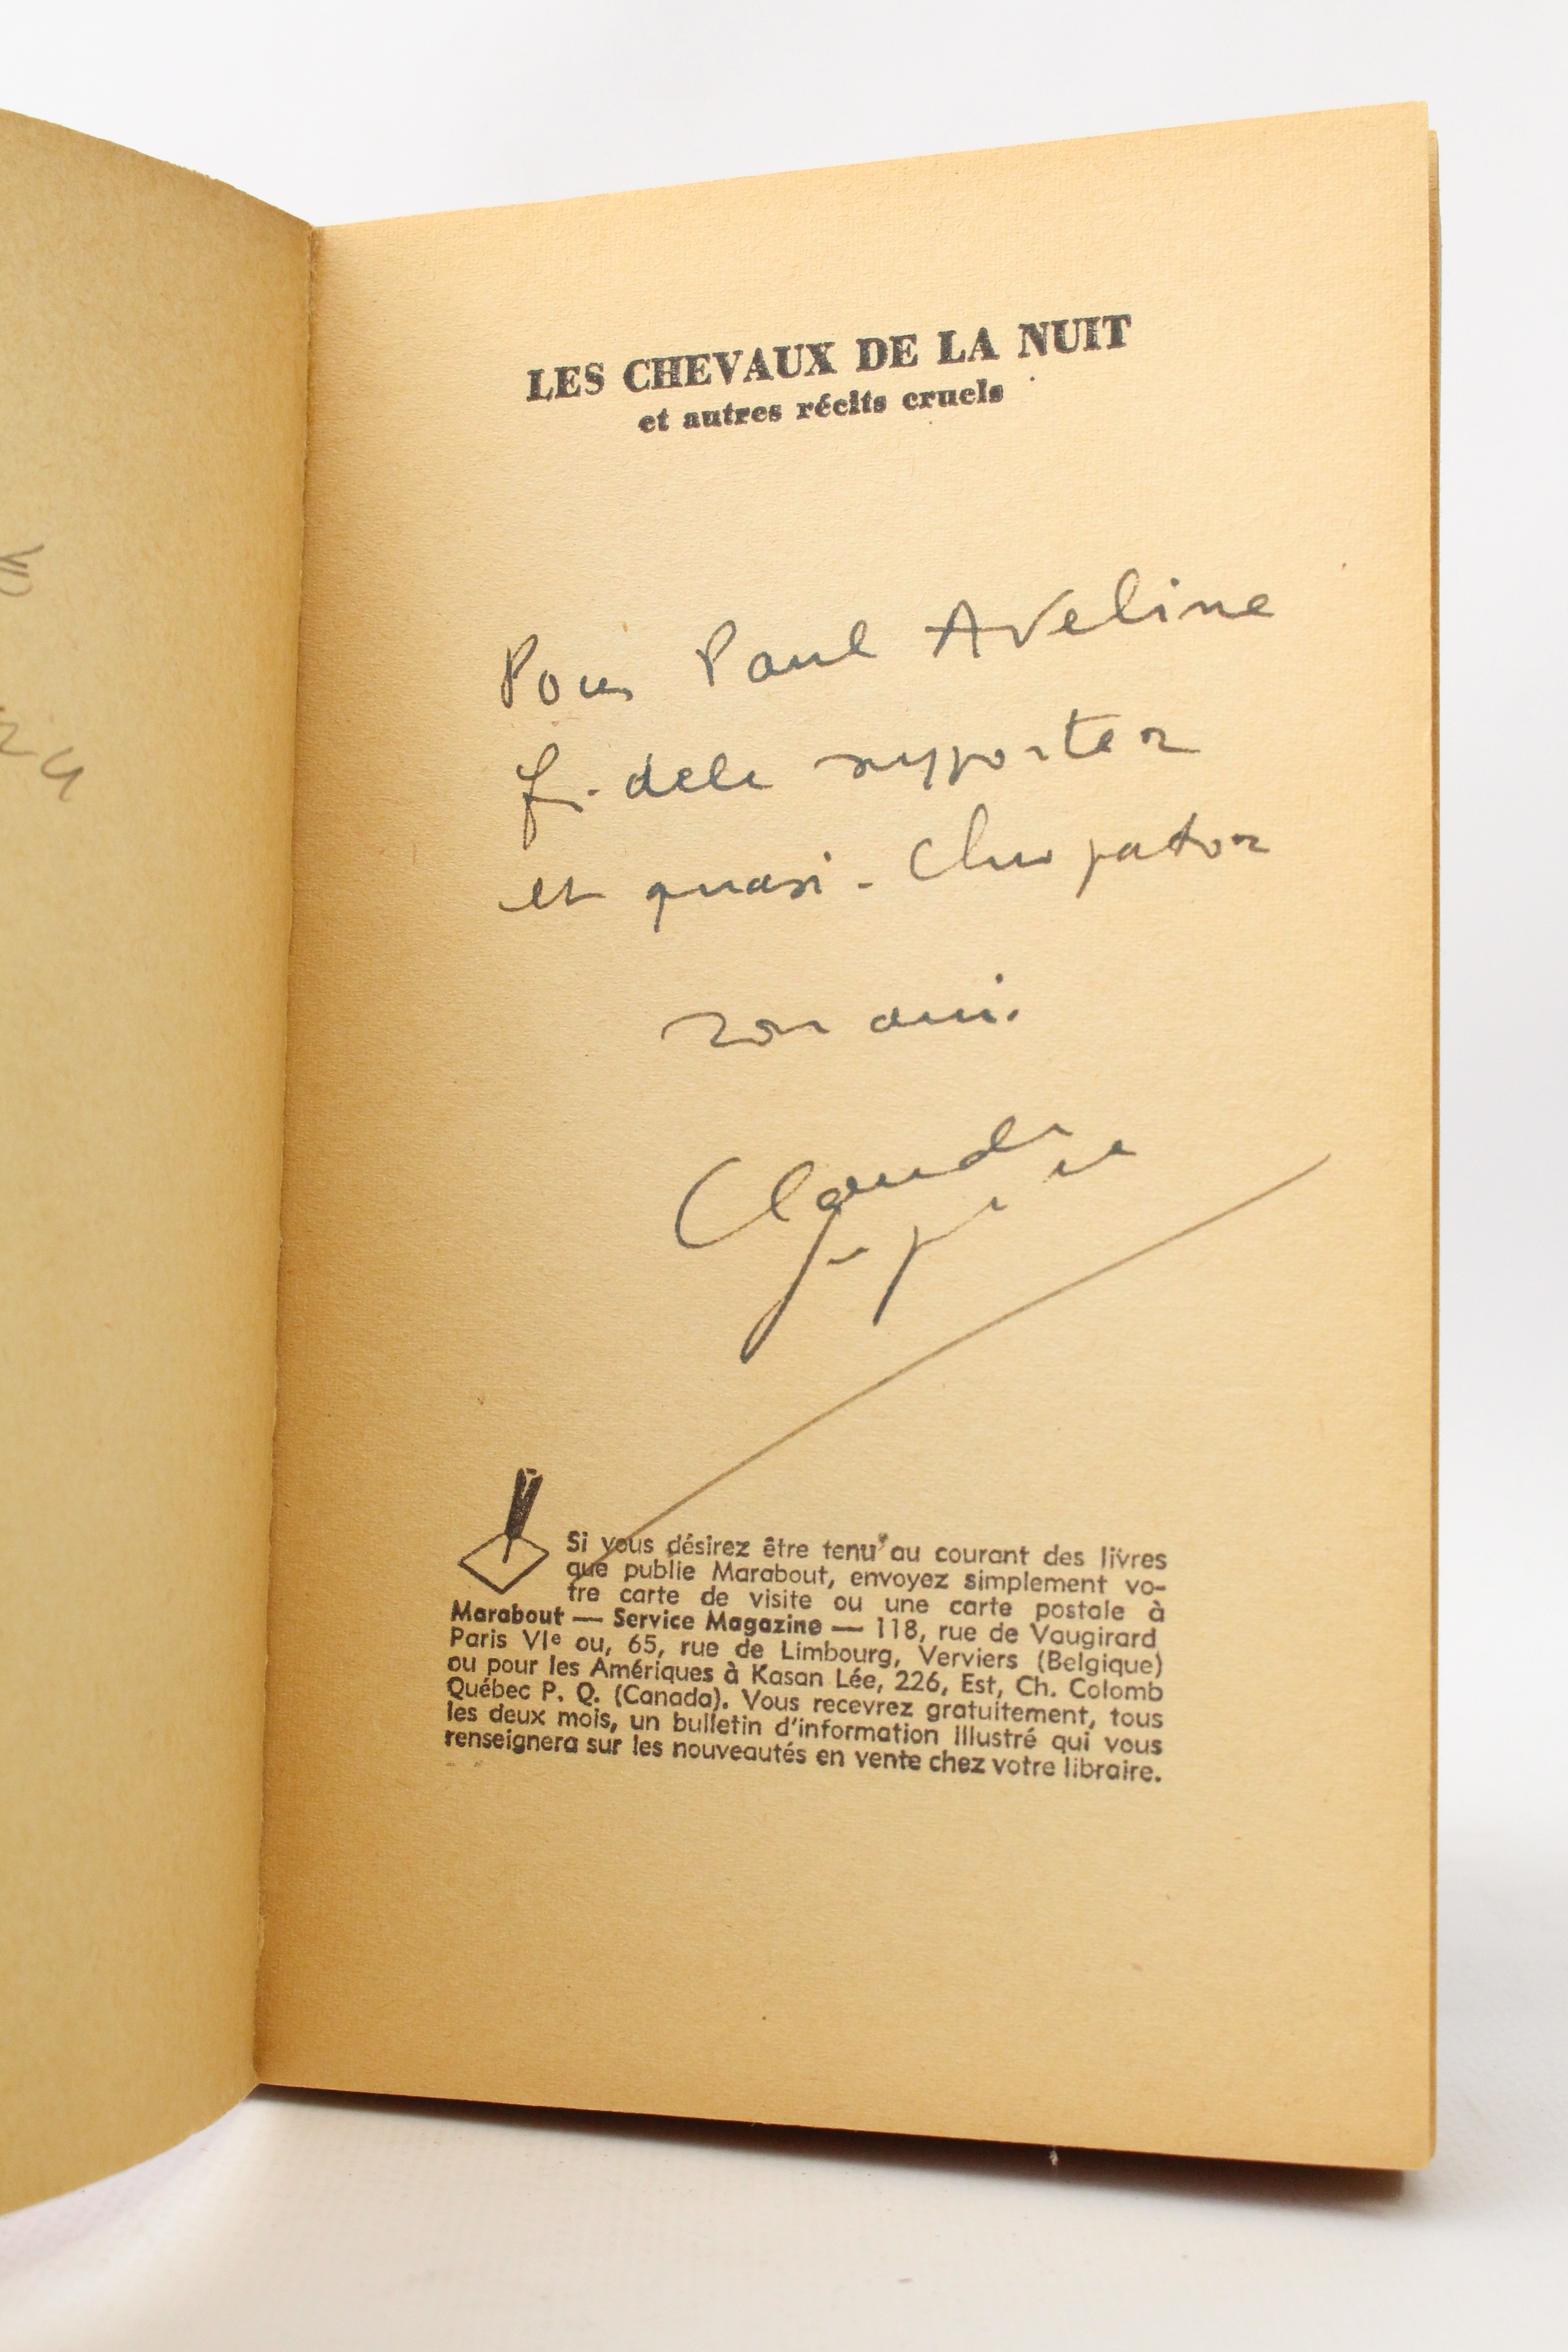 LES CHEVAUX DE LA NUIT
et autres récits cruels
Pour Paul Aveline
fidele supporter
et quasi-
son ami.
Claude
Si vous désirez être tenu au courant des livres
que publie Marabout, envoyez simplement vo-
tre carte de visite ou une carte postale à
Marabout — Service Magazine — 118, rue de Vaugirard
Paris VIe ou, 65, rue de Limbourg, Verviers (Belgique)
ou pour les Amériques à Kasan Lée, 226, Est, Ch. Colomb
Québec P. Q. (Canada). Vous recevrez gratuitement, tous
les deux mois, un bulletin d'information illustré qui vous
renseignera sur les nouveautés en vente chez votre libraire.